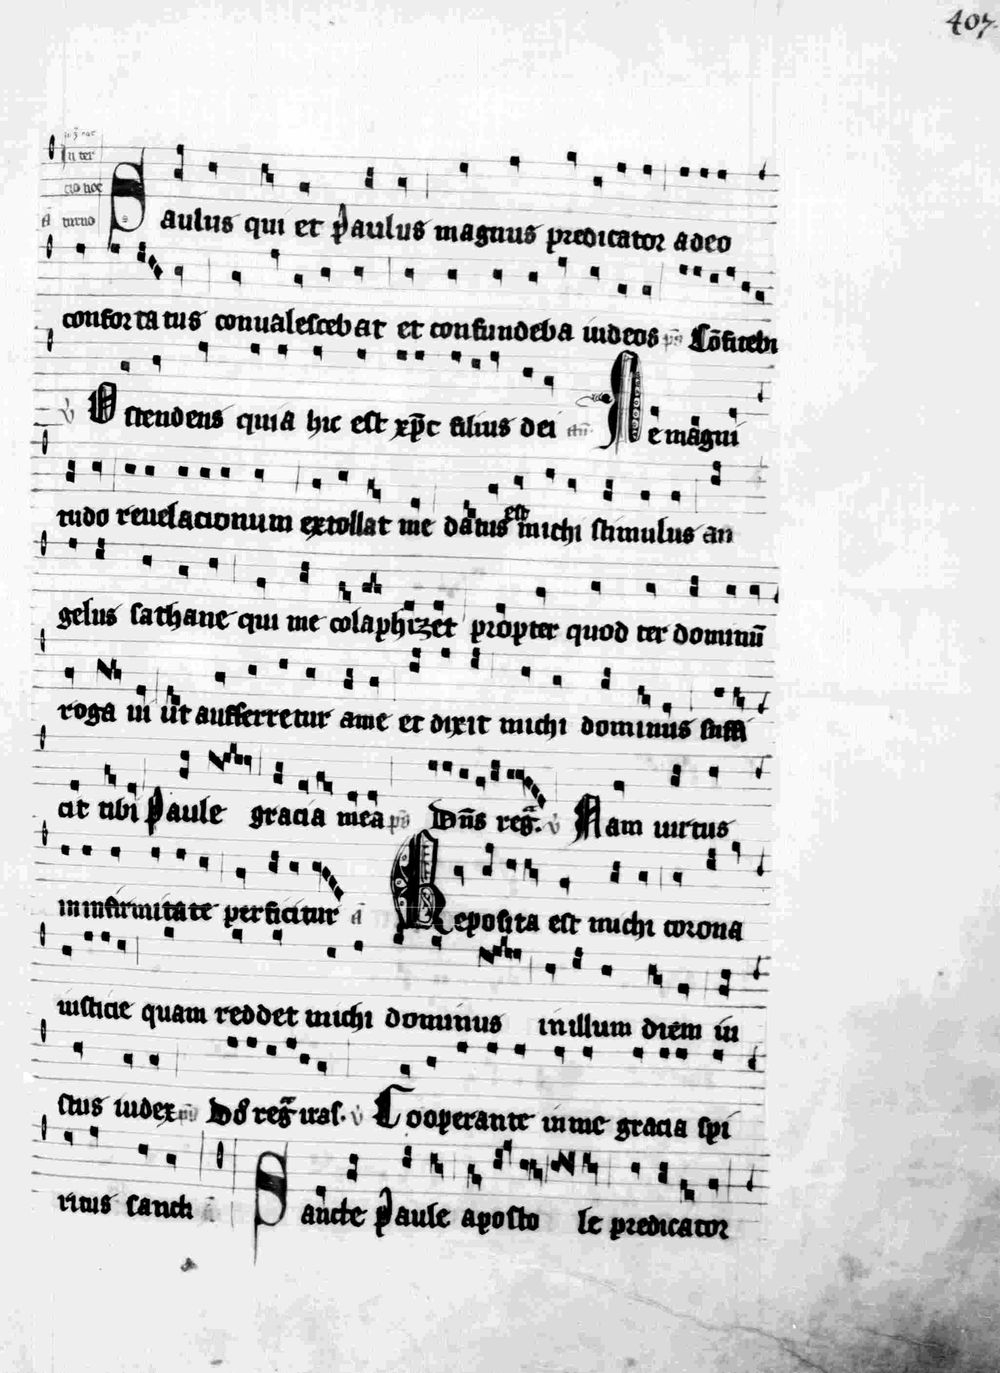 407.
In ter
cio noc
A turno
Saulus qui et Paulus magnus predicator adeo
confortatus conualescebat et confundeba iudeos ps Cōfitebi
v Ostendens quia hic est xp̄c filius dei Ne magni
tudo reuelacionum extollat me datus est michi stimulus an
gelus sathane qui me colaphizet propter quod ter dominū
roga ui ut aufferretur ame et dixit michi dominus suffi
cit tibi Paule gracia mea ps Dn̄s reg. v Nam uirtus
in infirmitate perficitur a Reposita est michi corona
iusticie quam reddet michi dominus in illum diem iu
stus iudex Ds reg uas. v Cooperante in me gracia spi
ritus sancti a Sancte Paule aposto le predicator